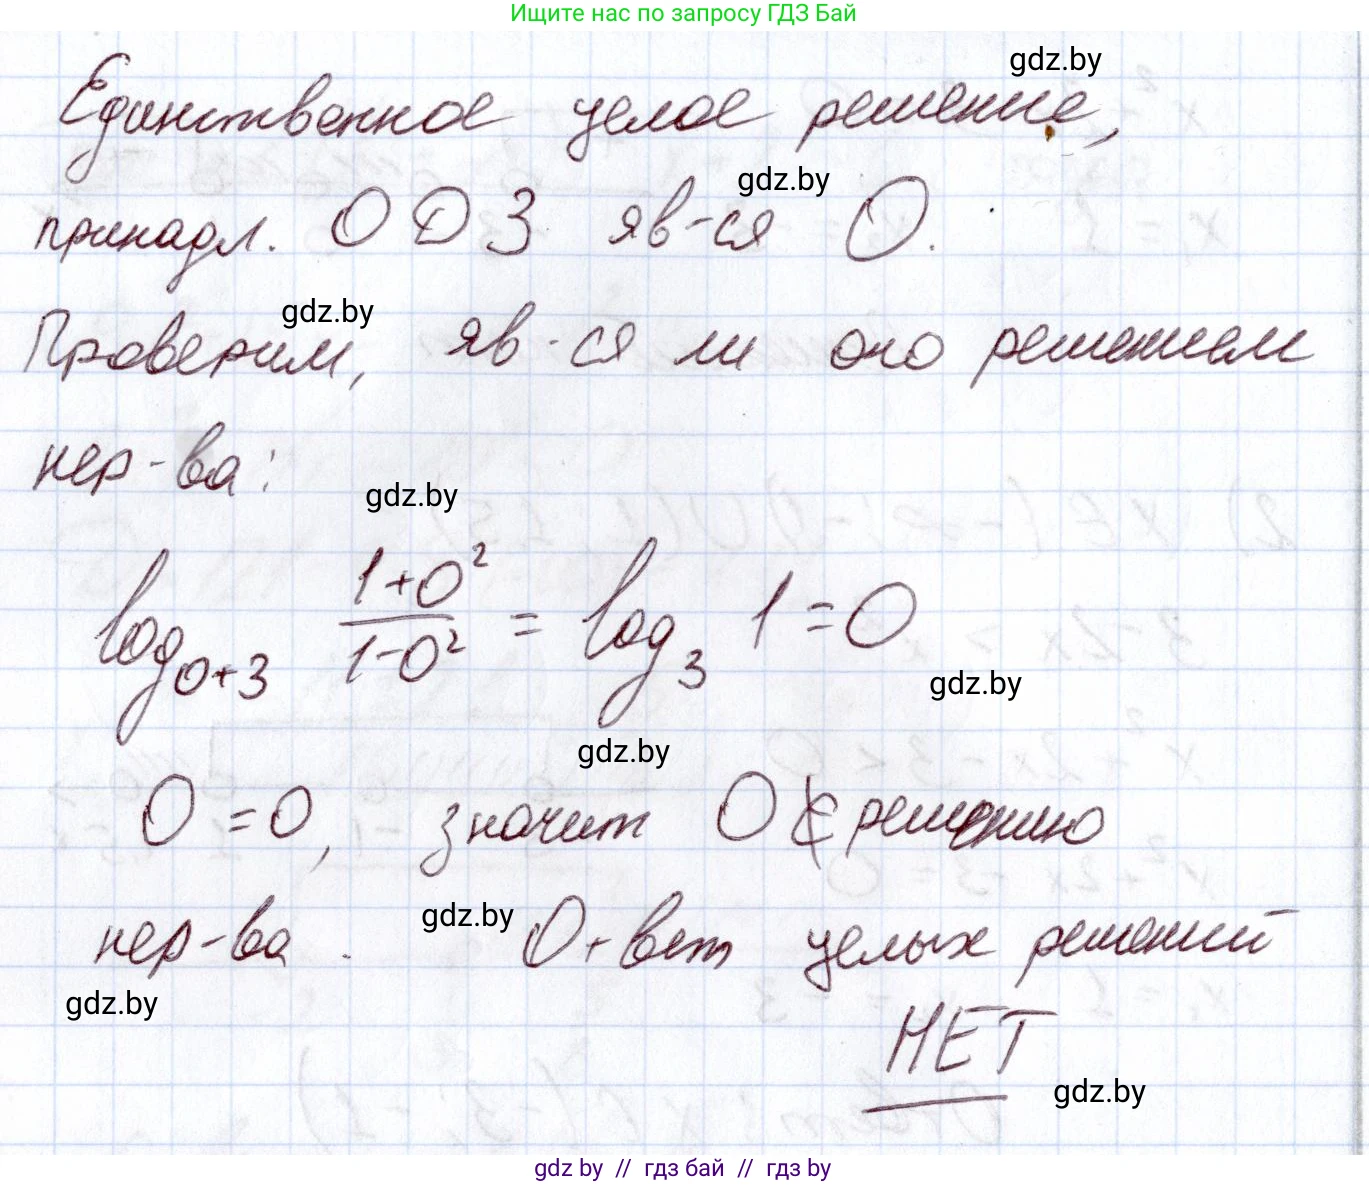 Ищите нас по запросу ГДЗ Бай
gdz.by
Единственное целое решение,
gdz.by
принадл. ОДЗ яв-ся 0.
gdz.by
Проверим, яв-ся ли оно решением
нер-ва:
gdz.by
log_{0+3} \frac{1+0^2}{1-0^2} = log_3 1 = 0
gdz.by
gdz.by
0 = 0, значит 0 ∉ решению
нер-ва. Ответ целых решений
gdz.by
gdz.by
НЕТ
gdz.by
gdz by // гдз бай // gdz by